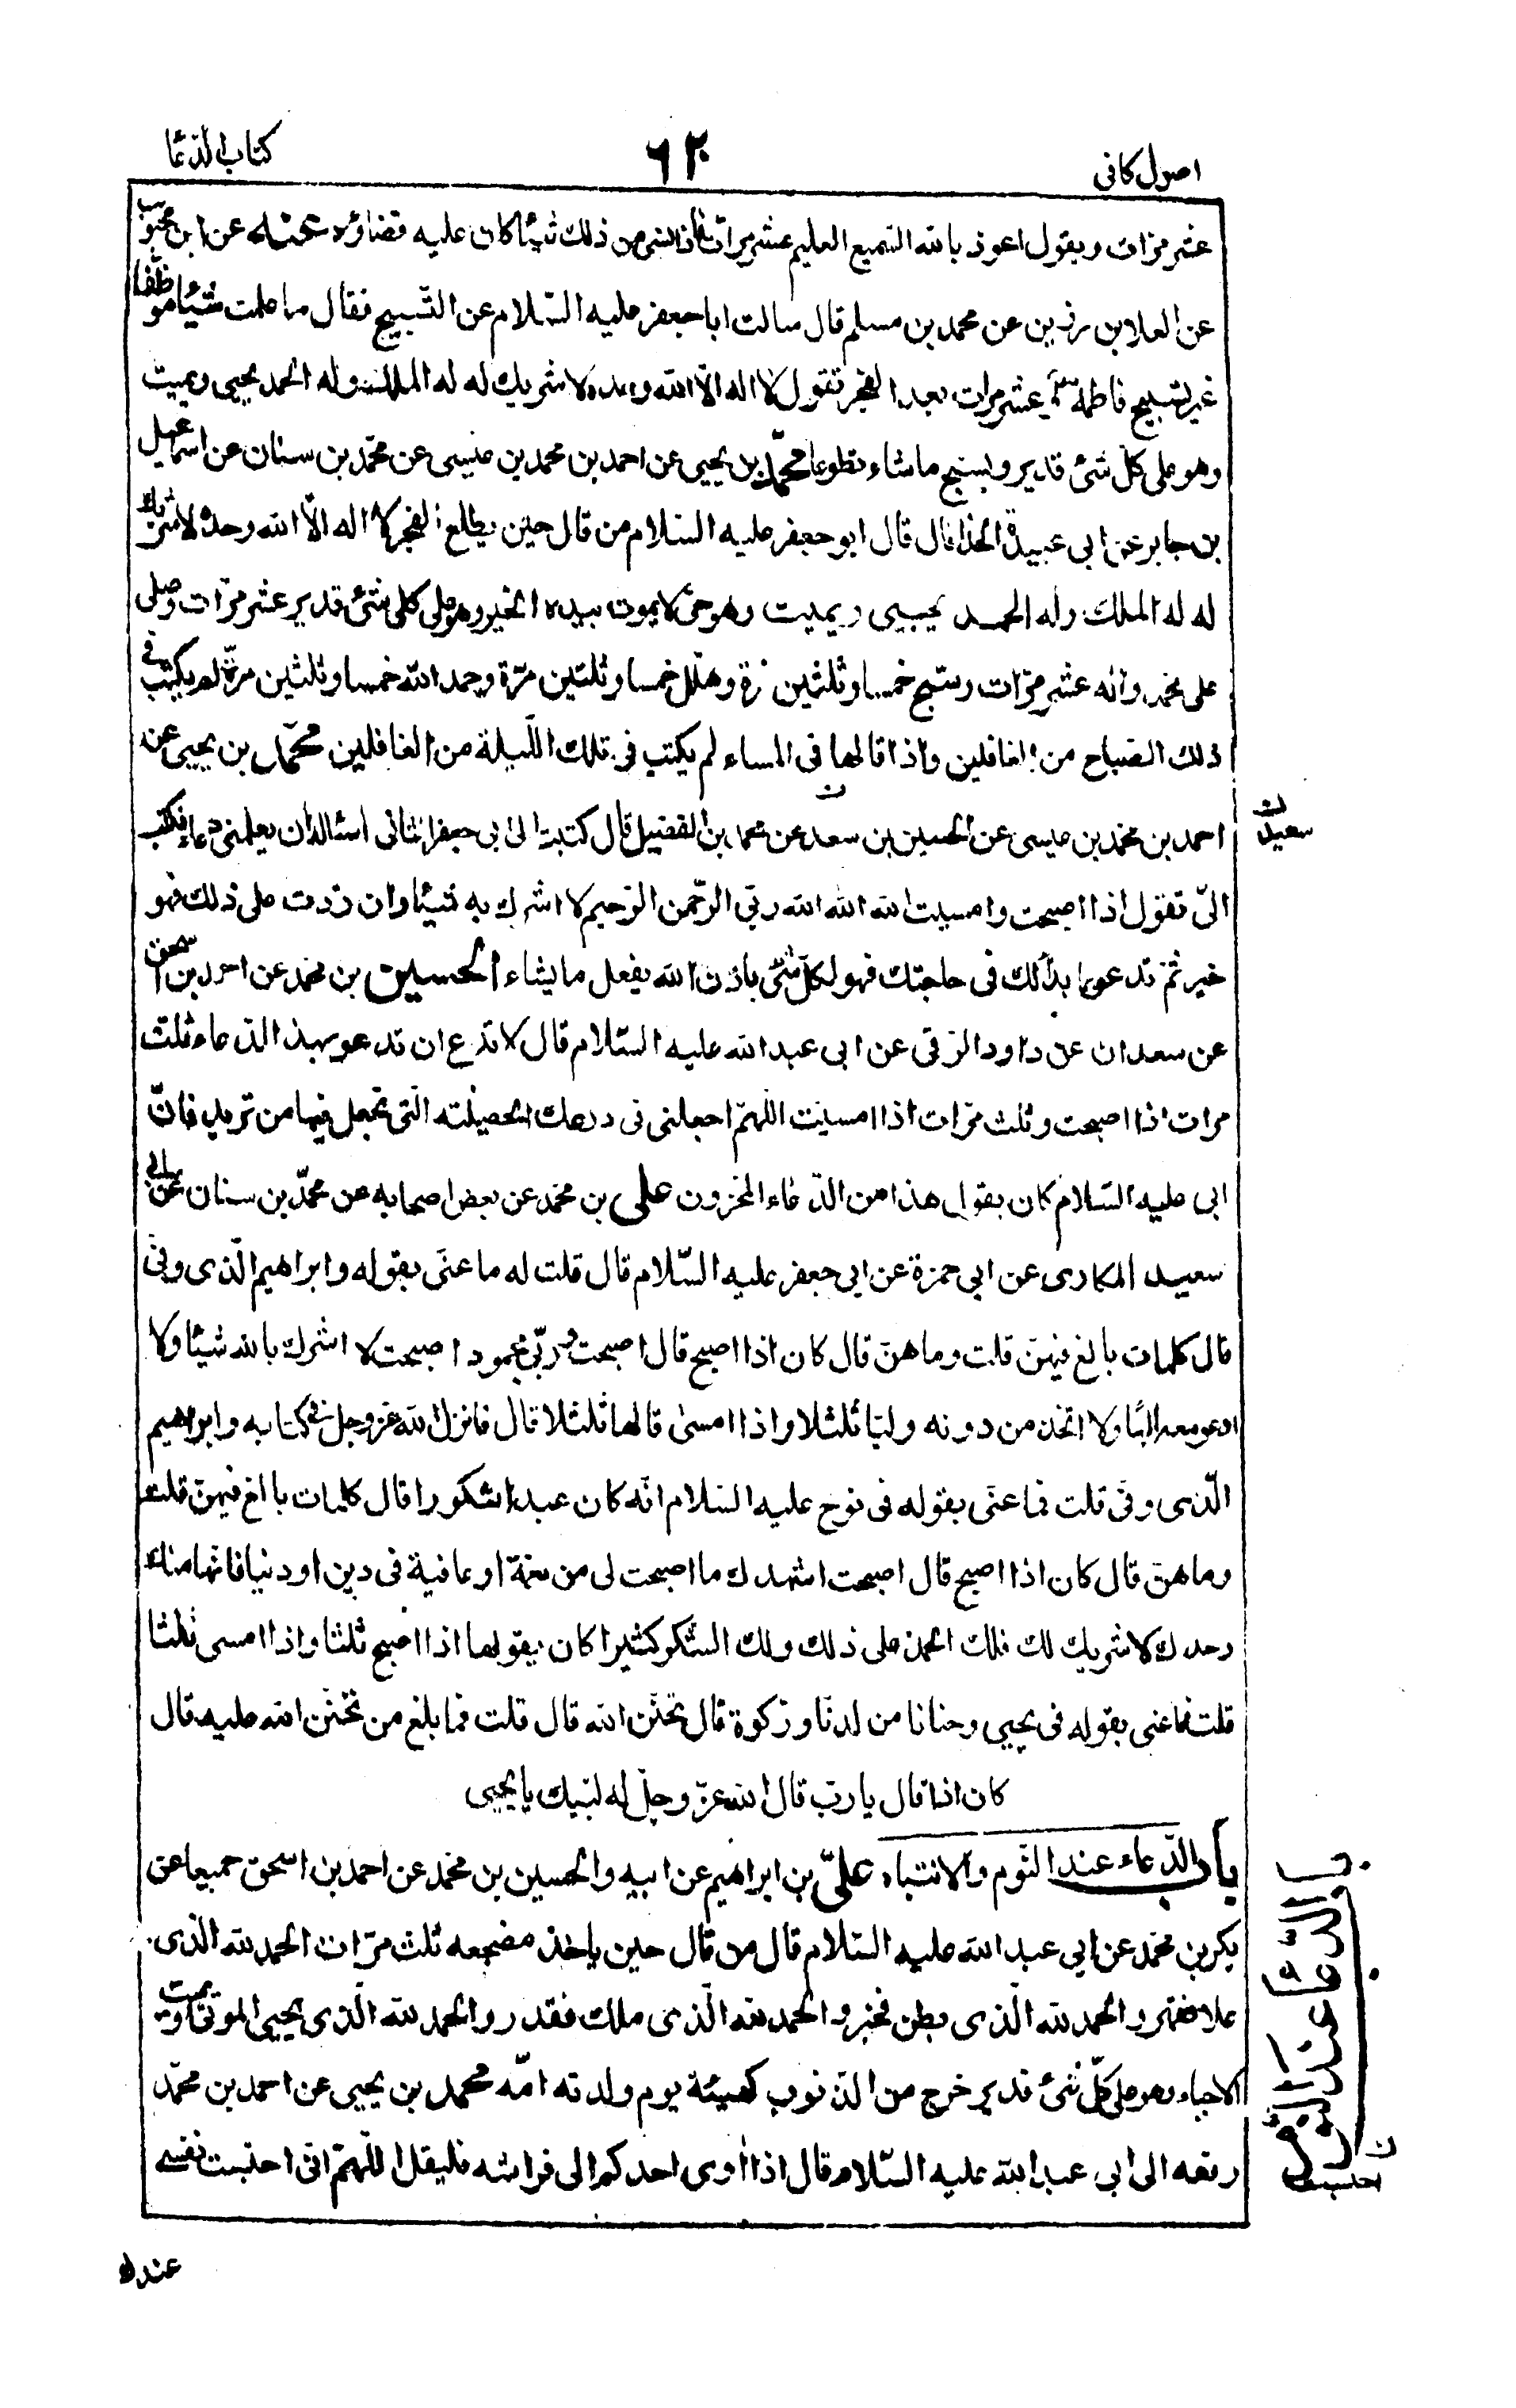 اصول كافى
٦٢٠
كتاب الدّعا
عشر مرّات ويقول اعوذ بالله السّميع العليم عشر مرّات فاذا نسى من ذلك شيئا كان عليه قضاؤه عنه عن ابن محبوب
عن العلا بن رزين عن محمد بن مسلم قال سالت ابا جعفر عليه السّلام عن التّسبيح فقال ما علمت شيئا موظّفا
غير تسبيح فاطمة ع وعشر مرّات بعد الفجر تقول لا اله الّا الله وحده لا شريك له له الملك وله الحمد يحيى ويميت
وهو على كلّ شئ قدير ويسبّح ما شاء تطوعا محمّد بن يحيى عن احمد بن محمد بن عيسى عن محمّد بن سنان عن اسمعيل
بن جابر عن ابى عبيدة الحذا قال قال ابو جعفر عليه السّلام من قال حين يطلع الفجر لا اله الّا الله وحده لا شريك
له له الملك وله الحمد يحيى ويميت وهو حىّ لا يموت بيده الخير وهو على كلّ شئ قدير عشر مرّات وصلى
على محمد واله عشر مرّات وسبّح خمسا وثلثين مرة وهلّل خمسا وثلثين مرّة وحمد الله خمسا وثلثين مرّة لم يكتب فى
ذلك الصّباح من الغافلين واذا قالها فى المساء لم يكتب فى تلك اللّيلة من الغافلين محمّد بن يحيى عن
احمد بن محمّد بن عيسى عن الحسين بن سعد عن محمد بن الفضيل قال كتبت الى ابى جعفر الثانى اسئاله ان يعلمنى دعاء فكتب
سعيد ن
الىّ تقول اذا اصبحت وامسيت الله الله الله ربّى الرّحمن الرّحيم لا اشرك به شيئا وان زدت على ذلك فهو
خير ثمّ تدعو بما بدا لك فى حاجتك فهو لكلّ شئ باذن الله يفعل ما يشاء الحسين بن محمد عن احمد بن اسحق
عن سعدان عن داود الرّقى عن ابى عبد الله عليه السّلام قال لا تدع ان تدعو بهذا الدّعاء ثلث
مرات اذا اصبحت وثلث مرّات اذا امسيت اللّهمّ اجعلنى فى درعك الحصينة الّتى تجعل فيها من تريد فانّ
ابى عليه السّلام كان يقول هذا من الدّعاء المخزون على بن محمّد عن بعض اصحابه عن محمّد بن سنان عن ابى
سعيد المكارى عن ابى حمزة عن ابى جعفر عليه السّلام قال قلت له ما عنى بقوله وابراهيم الّذى وفّى
قال كلمات بالغ فيهنّ قلت وما هنّ قال كان اذا اصبح قال اصبحت وربّى محمود اصبحت لا اشرك بالله شيئا ولا
ادعو معه الها ولا اتّخذ من دونه وليّا ثلثا واذا امسى قالها ثلثا قال فانزل الله عزّ وجل فى كتابه وابراهيم
الّذى وفّى قلت فما عنى بقوله فى نوح عليه السّلام انّه كان عبدا شكورا قال كلمات بالغ فيهنّ قلت
وما هنّ قال كان اذا اصبح قال اصبحت اشهدك ما اصبحت لى من نعمة او عافية فى دين او دنيا فانّها منك
وحدك لا شريك لك فلك الحمد على ذلك ولك الشّكر كثيرا كان يقولها اذا اصبح ثلثا واذا امسى ثلثا
قلت فما عنى بقوله فى يحيى وحنانا من لدنّا وزكوة قال تحنّن الله قال قلت فما بلغ من تحنّن الله عليه قال
كان اذا قال يا ربّ قال الله عزّ وجلّ له لبّيك يا يحيى
باب الدّعاء عند النّوم والانتباه علىّ بن ابراهيم عن ابيه والحسين بن محمّد عن احمد بن اسحق جميعا عن
باب الدّعا عند النّوم
بكر بن محمّد عن ابى عبد الله عليه السّلام قال من قال حين ياخذ مضجعه ثلث مرّات الحمد لله الّذى
علا فقهر والحمد لله الّذى بطن فخبر والحمد لله الّذى ملك فقدر والحمد لله الّذى يحيى الموتى ويميت
الاحياء وهو على كلّ شئ قدير خرج من الذنوب كهيئة يوم ولدته امّه محمد بن يحيى عن احمد بن محمّد
رفعه الى ابى عبد الله عليه السّلام قال اذا اوى احدكم الى فراشه فليقل اللّهمّ انّى احتبست نفسى
عندك